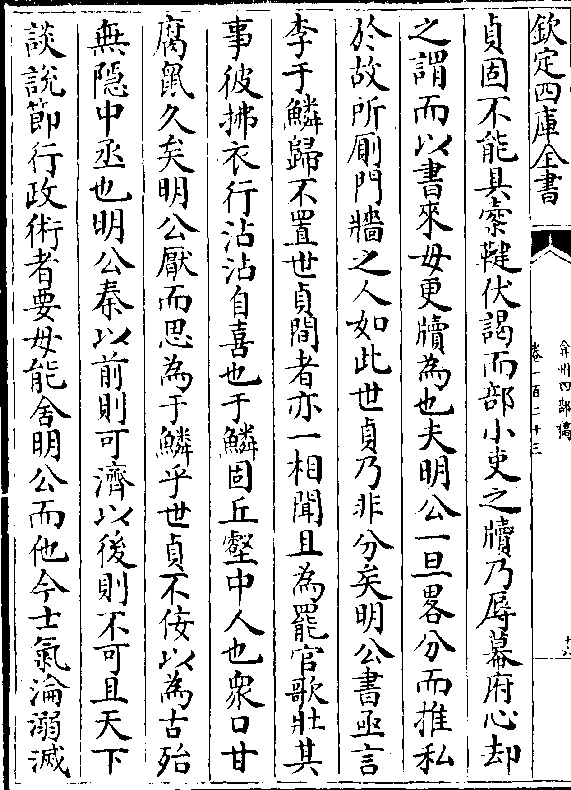 欽定四庫全書
弇州四部稿
卷一百二十三
十六
貞固不能具橐鞬伏謁而部小吏之牘乃辱幕府心却
之謂而以書來毋更牘為也夫明公一旦畧分而推私
於故所厠門牆之人如此世貞乃非分矣明公書亟言
李于鱗歸不置世貞間者亦一相聞且為罷官歌壯其
事彼拂衣行沾沾自喜也于鱗固丘壑中人也衆口甘
腐鼠久矣明公厭而思為于鱗乎世貞不佞以為古殆
無隠中丞也明公秦以前則可濟以後則不可且天下
談說節行政術者要毋能舍明公而他今士氣淪溺滅